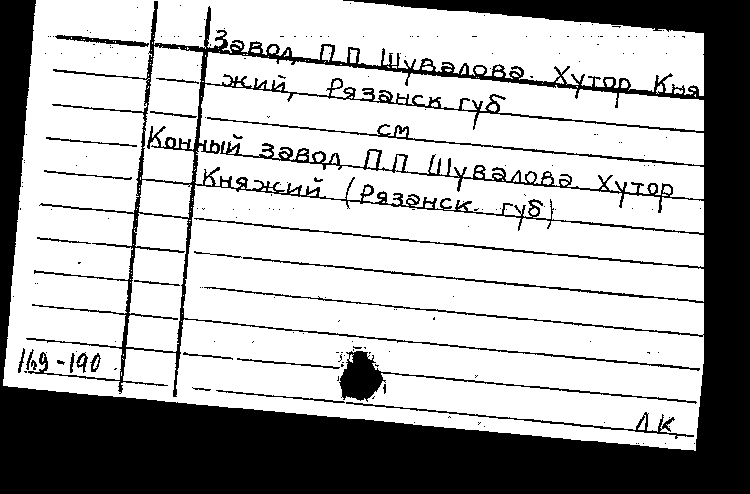 Завод П.П Шувалова. Хутор Кня
жий, Рязанск губ
см
Конный завод П.П Шувалова Хутор
Княжий (Рязанск. губ)
169-190
Л.К.